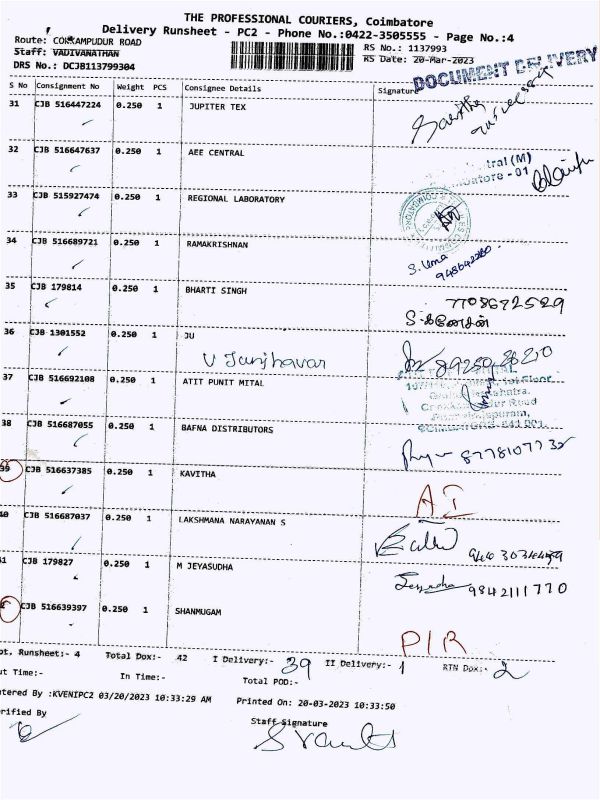 THE PROFESSIONAL COURIERS, Coimbatore
Delivery Runsheet - PC2 - Phone No.:0422-3505555 - Page No.:4
Route: COKKAMPUDUR ROAD
Staff: VADIVANATHAN
RS No.: 1137993
DRS No.: DCJB113799304
RS Date: 20-Mar-2023
DOCUMENT DELIVERY
S No Consignment No Weight PCS Consignee Details Signature
31 CJB 516447224 0.250 1 JUPITER TEX
32 CJB 516647637 0.250 1 AEE CENTRAL
33 CJB 515927474 0.250 1 REGIONAL LABORATORY
34 CJB 516689721 0.250 1 RAMAKRISHNAN
S. Uma
35 CJB 179814 0.250 1 BHARTI SINGH 7708672529
S. கணேசன்
36 CJB 1301552 0.250 1 JU
37 CJB 516692108 0.250 1 ATIT PUNIT MITAL
38 CJB 516687055 0.250 1 BAFNA DISTRIBUTORS
8778107732
39 CJB 516637385 0.250 1 KAVITHA
AI
40 CJB 516687037 0.250 1 LAKSHMANA NARAYANAN S
41 CJB 179827 0.250 1 M JEYASUDHA
9842111770
CJB 516639397 0.250 1 SHANMUGAM
P/R
pt. Runsheet:- 4 Total Dox:- 42 I Delivery:- 39 II Delivery:- 1 RTN Dox:- 2
ut Time:- In Time:- Total POD:-
ntered By :KVENIPC2 03/20/2023 10:33:29 AM Printed On: 20-03-2023 10:33:50
erified By Staff Signature